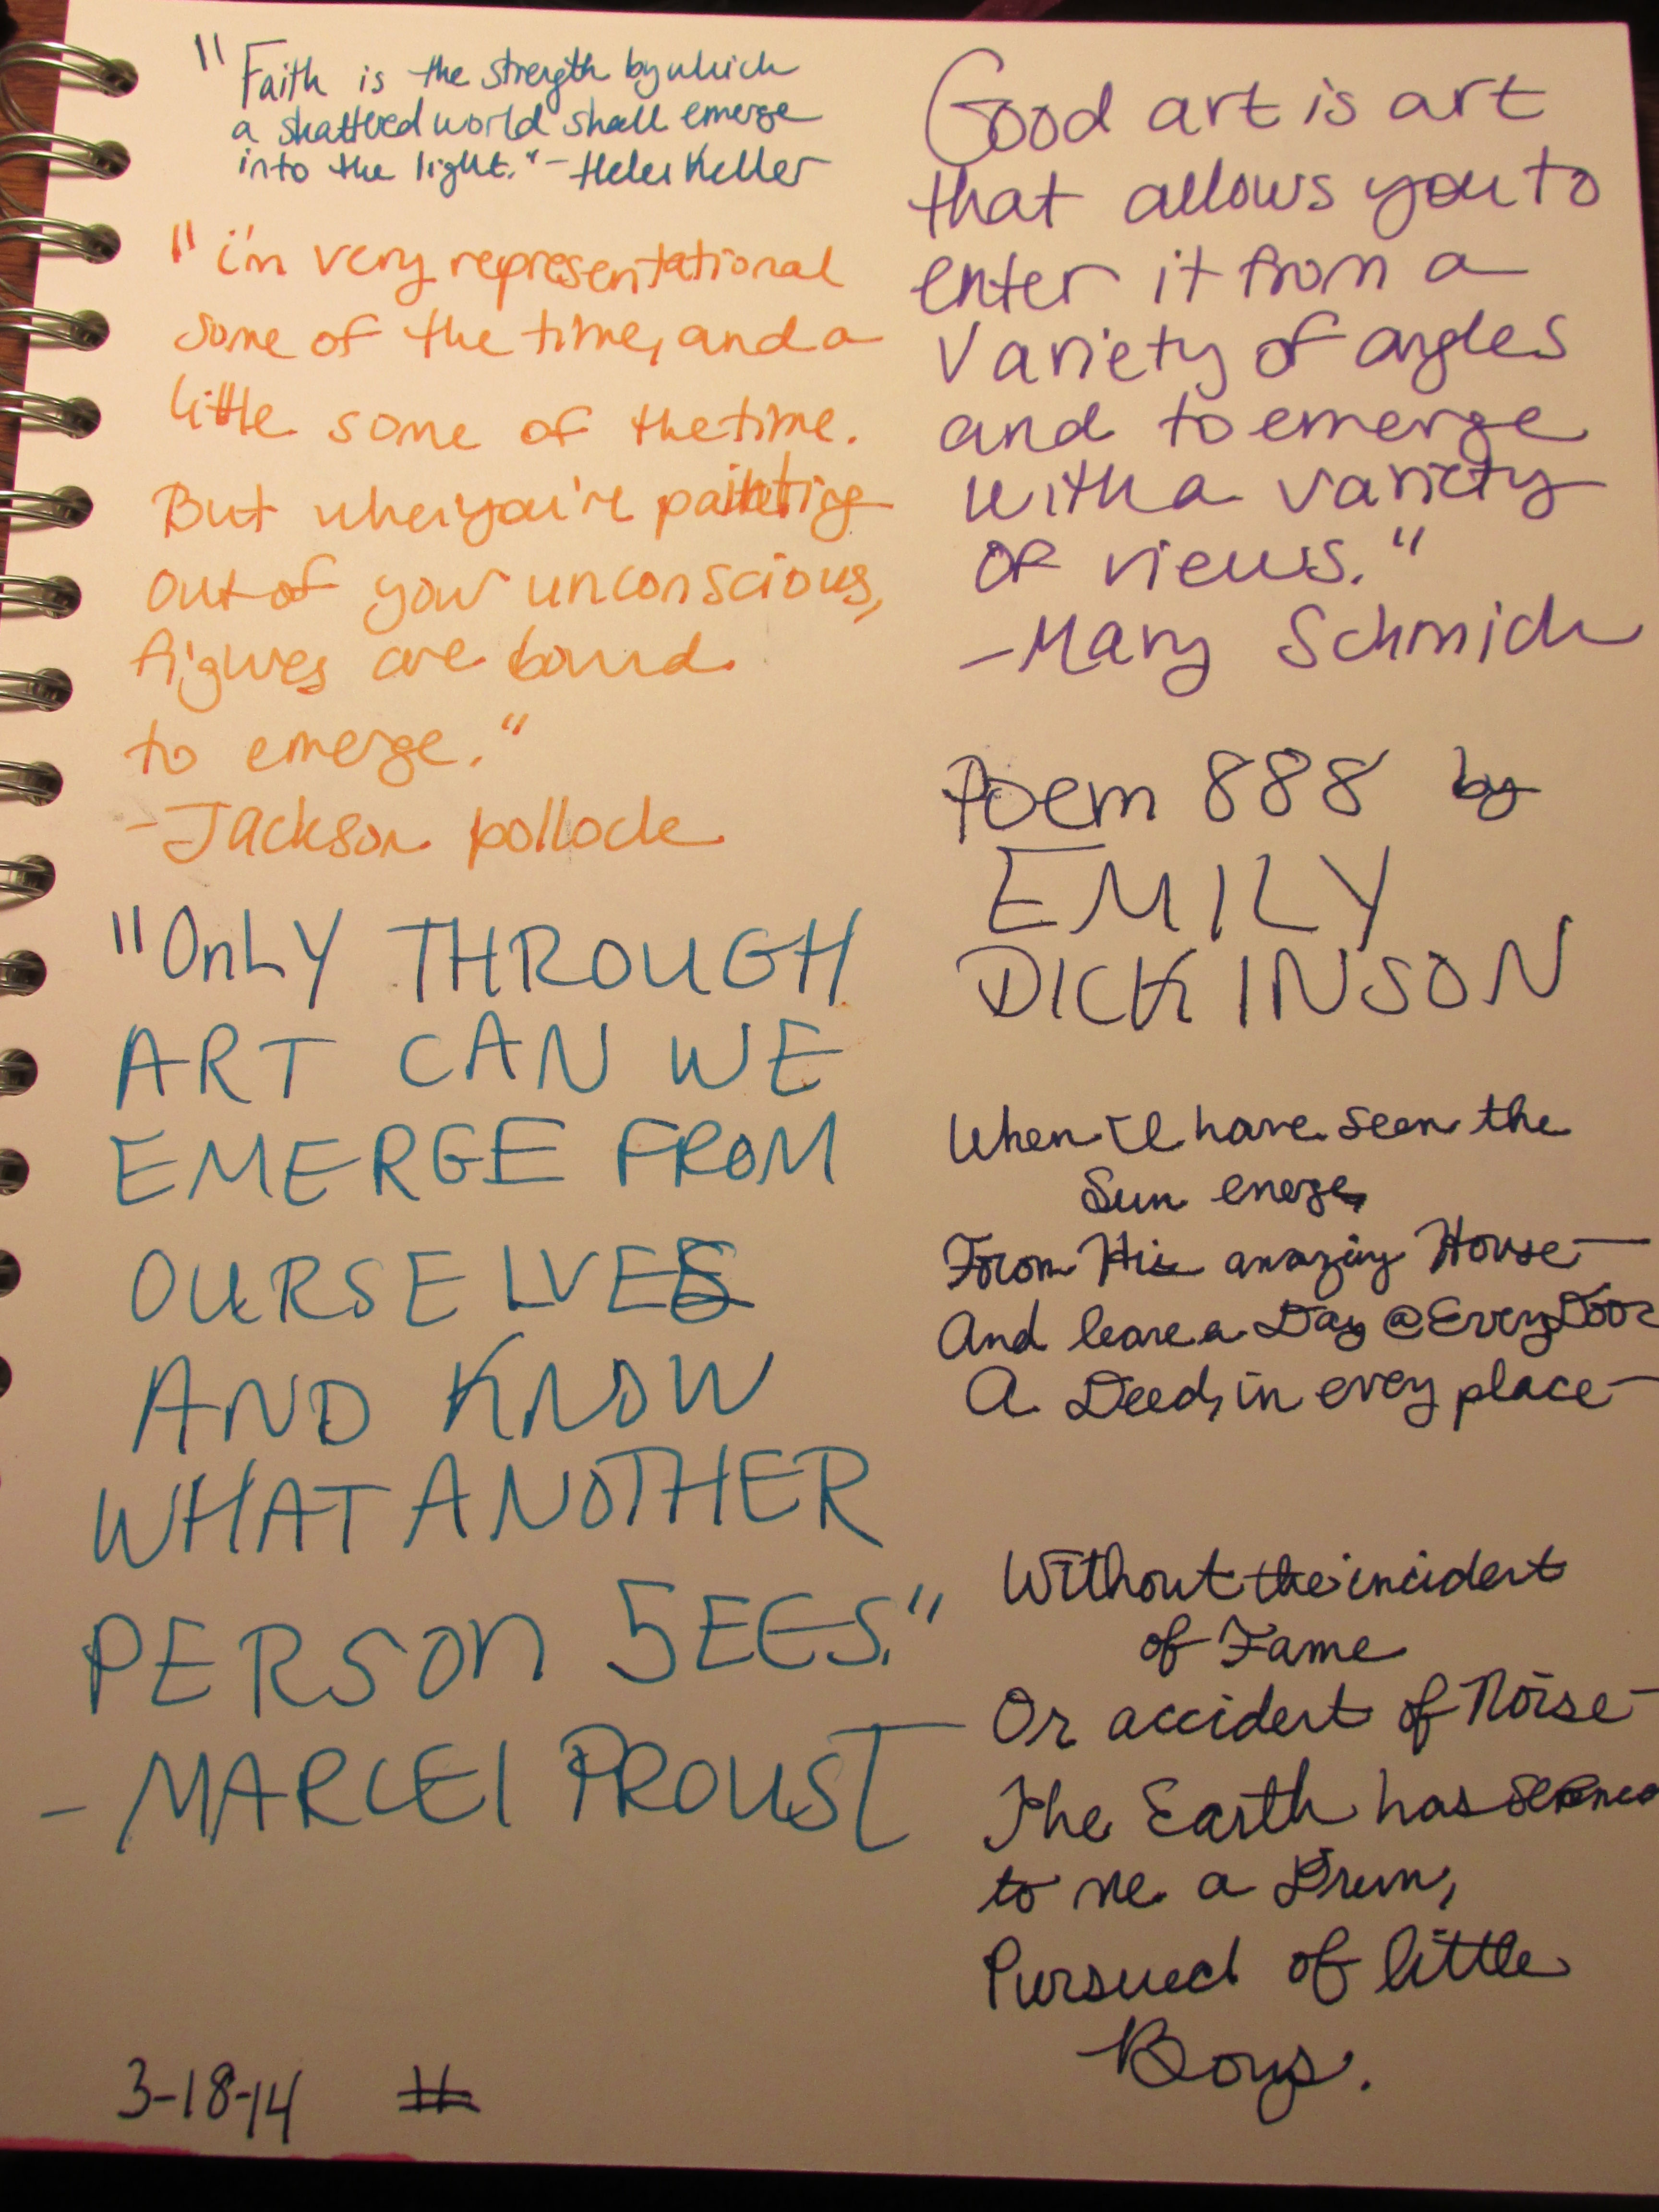 "Faith is the strength by which
a shattered world shall emerge
into the light." - Helen Keller
"i'm very representational
some of the time, and a
little some of the time.
But when you're painting
out of your unconscious,
figures are bound
to emerge."
- Jackson pollock
"OnLY THROUGH
ART CAN WE
EMERGE FROM
OURSELVES
AND KNOW
WHAT ANOTHER
PERSON SEES."
- MARCEl PROUST
3-18-14
Good art is art
that allows you to
enter it from a
variety of angles
and to emerge
with a variety
of views."
- Mary Schmich
Poem 888 by
EMILY
DICKINSON
When I have seen the
Sun emerge
From His amazing House —
And leave a Day @ Every Door
A Deed, in every place —
Without the incident
of Fame
Or accident of Noise —
The Earth has
to me a Drum,
Pursued of little
Boys.